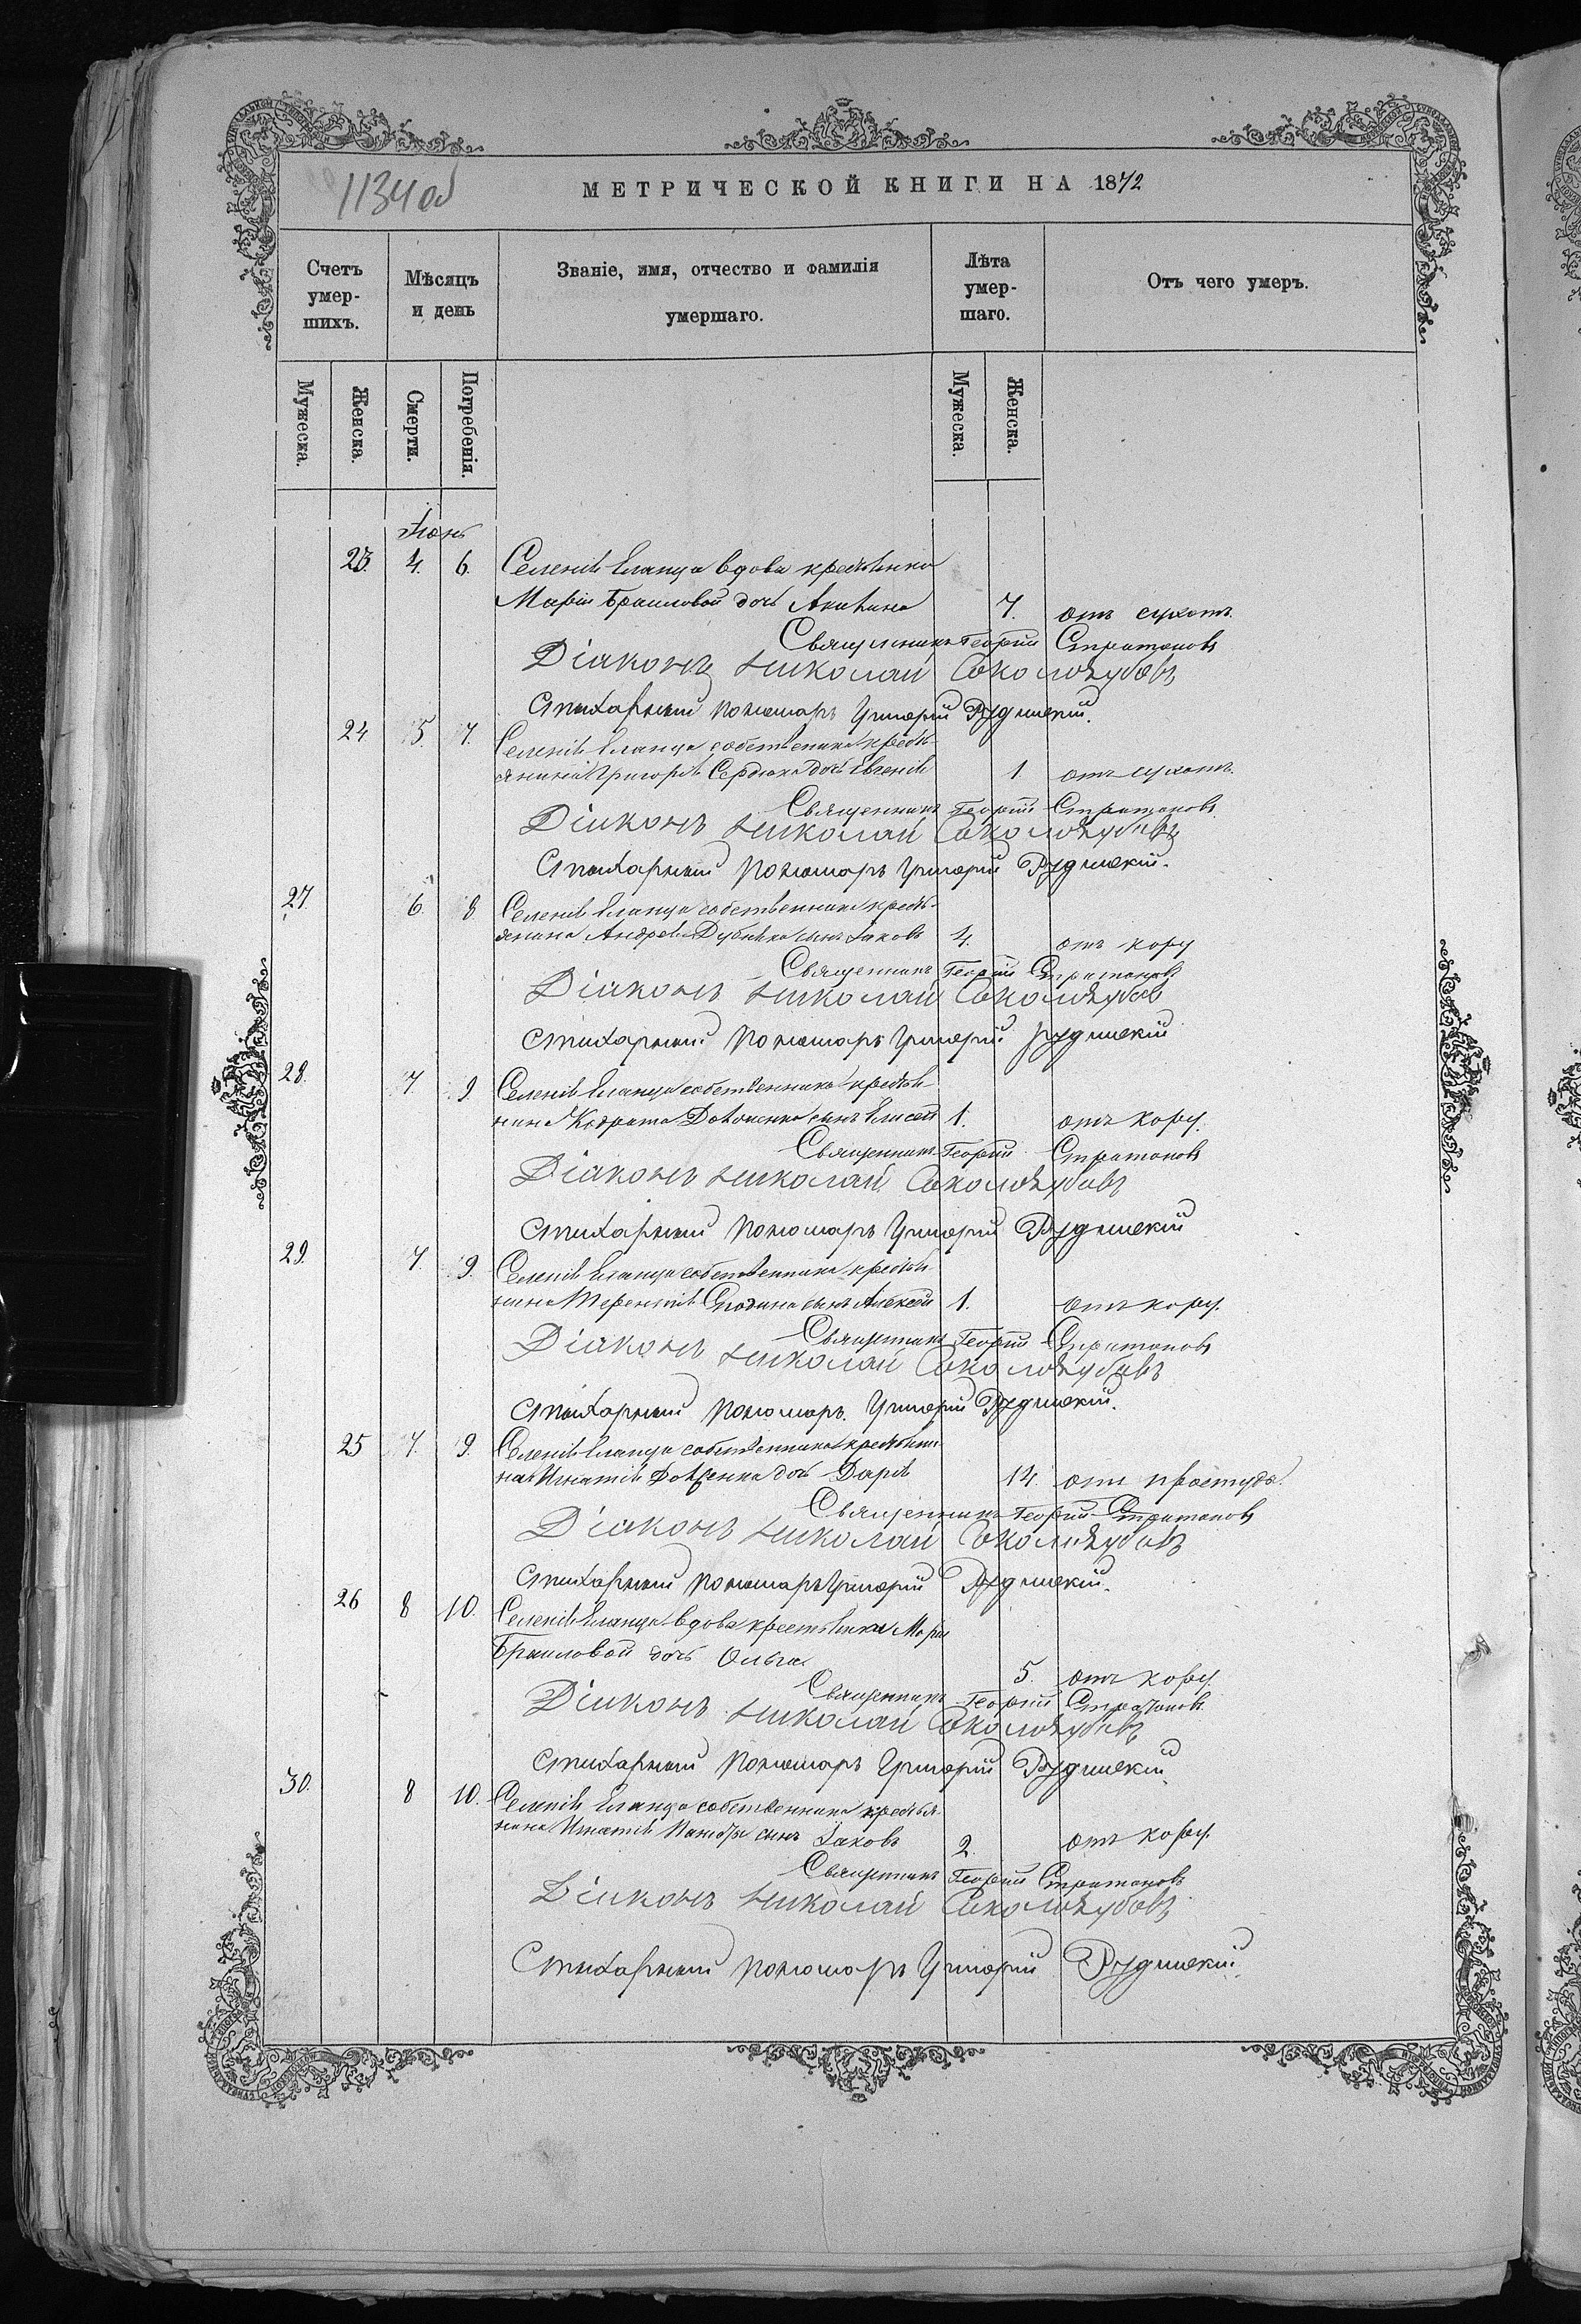 1134 об
МЕТРИЧЕСКОЙ КНИГИ НА 1872
Счетъ умер-шихъ.
Мѣсяцъ и день
Званіе, имя, отчество и фамилія умершаго.
Лѣта умер-шаго.
Отъ чего умеръ.
Мужеска.
Женска.
Смерти.
Погребенія.
Мужеска.
Женска.
Іюнь
23. 4. 6. Селенія Еланца вдовы крестьянки
Маріи Браиловой дочь Акилина 7. отъ сухот.
Священникъ Георгій Стратоновъ
Діаконъ Николай Соколовудовъ
Стихарный Пономарь Григорій Рудницкій.
24 5. 7. Селенія Еланца собственника кресть-
янина Григорія Сердюка дочь Евгенія 1 отъ сухот.
Священникъ Георгій Стратоновъ
Діаконъ Николай
Стихарный Пономарь Григорій Рудницкій.
27. 6. 8 Селенія Еланца собственника кресть-
янина Андрея сынъ Іаковъ 4. отъ кору
Священникъ Георгій Стратоновъ
Діаконъ Николай
Стихарный Пономарь Григорій Рудницкій
28. 7. 9 Селенія Еланца собственника крестья-
нина Кодрата сынъ Елисей 1. отъ кору.
Священникъ Георгій Стратоновъ
Діаконъ Николай
Стихарный Пономарь Григорій Рудницкій
29. 7. 9. Селенія Еланца собственника крестья-
нина Терентія сынъ Алексѣй 1. отъ кору.
Священникъ Георгій Стратоновъ
Діаконъ Николай
Стихарный Пономарь Григорій Рудницкій.
25 7. 9. Селенія Еланца собственника крестьяни-
на Игнатія дочь Дарія 14. отъ простуды.
Священникъ Георгій Стратоновъ
Діаконъ Николай
Стихарный Пономарь Григорій Рудницкій.
26 8 10. Селенія Еланца вдовы крестьянки Маріи
Браиловой дочь Ольга 5. отъ кору.
Священникъ Георгій Стратоновъ
Діаконъ Николай
Стихарный Пономарь Григорій Рудницкій
30. 8 10. Селенія Еланца собственника крестья-
нина Игнатія сынъ Іаковъ 2. отъ кору.
Священникъ Георгій Стратоновъ
Діаконъ Николай
Стихарный Пономарь Григорій Рудницкій.